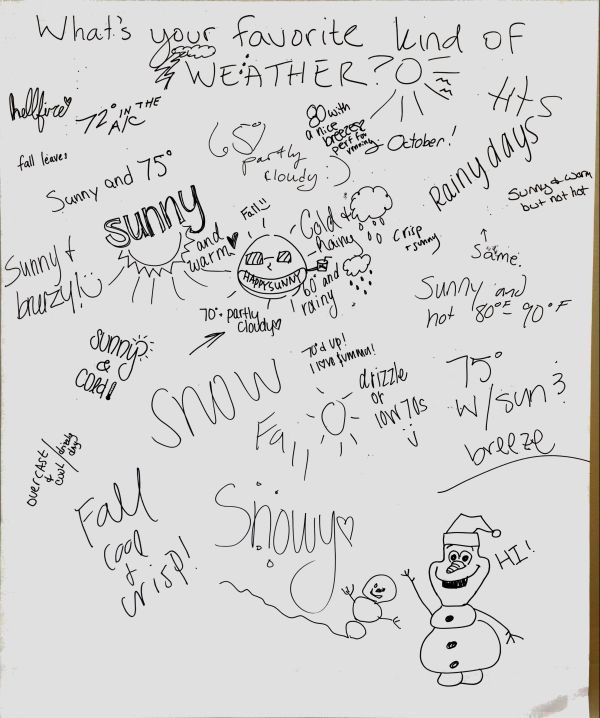 What's your favorite kind of
WEATHER?
hellfire
72° IN THE
A/C
fall leaves
65°
partly
cloudy :)
80 with
a nice
breeze
perf for
running
October!
Rainy days
Sunny & warm
but not hot
Sunny and 75°
sunny
and
warm
Fall!!
HAPPYSUNNY
Cold &
Rainy
60° and
rainy
crisp
+ sunny
↑
Same
Sunny +
breezy!
Sunny and
hot 80°F - 90°F
70° + partly
cloudy
Sunny
&
COLD!
SNOW
70 & up!
I love summa!
Fall
drizzle
or
low 70s
75°
w/ sun &
breeze
overcast
&
cool/drizzly
day
Fall
cool
+
crisp!
Snowy
HI!